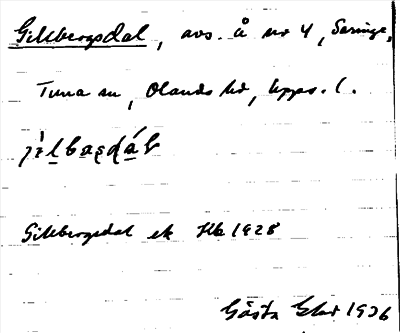 Gillbergsdal, avs. å nr 4, Saringe,
Tuna sn, Olands hd, Upps. l.
Gillbergsdal ek Hb 1928
Gösta 1936